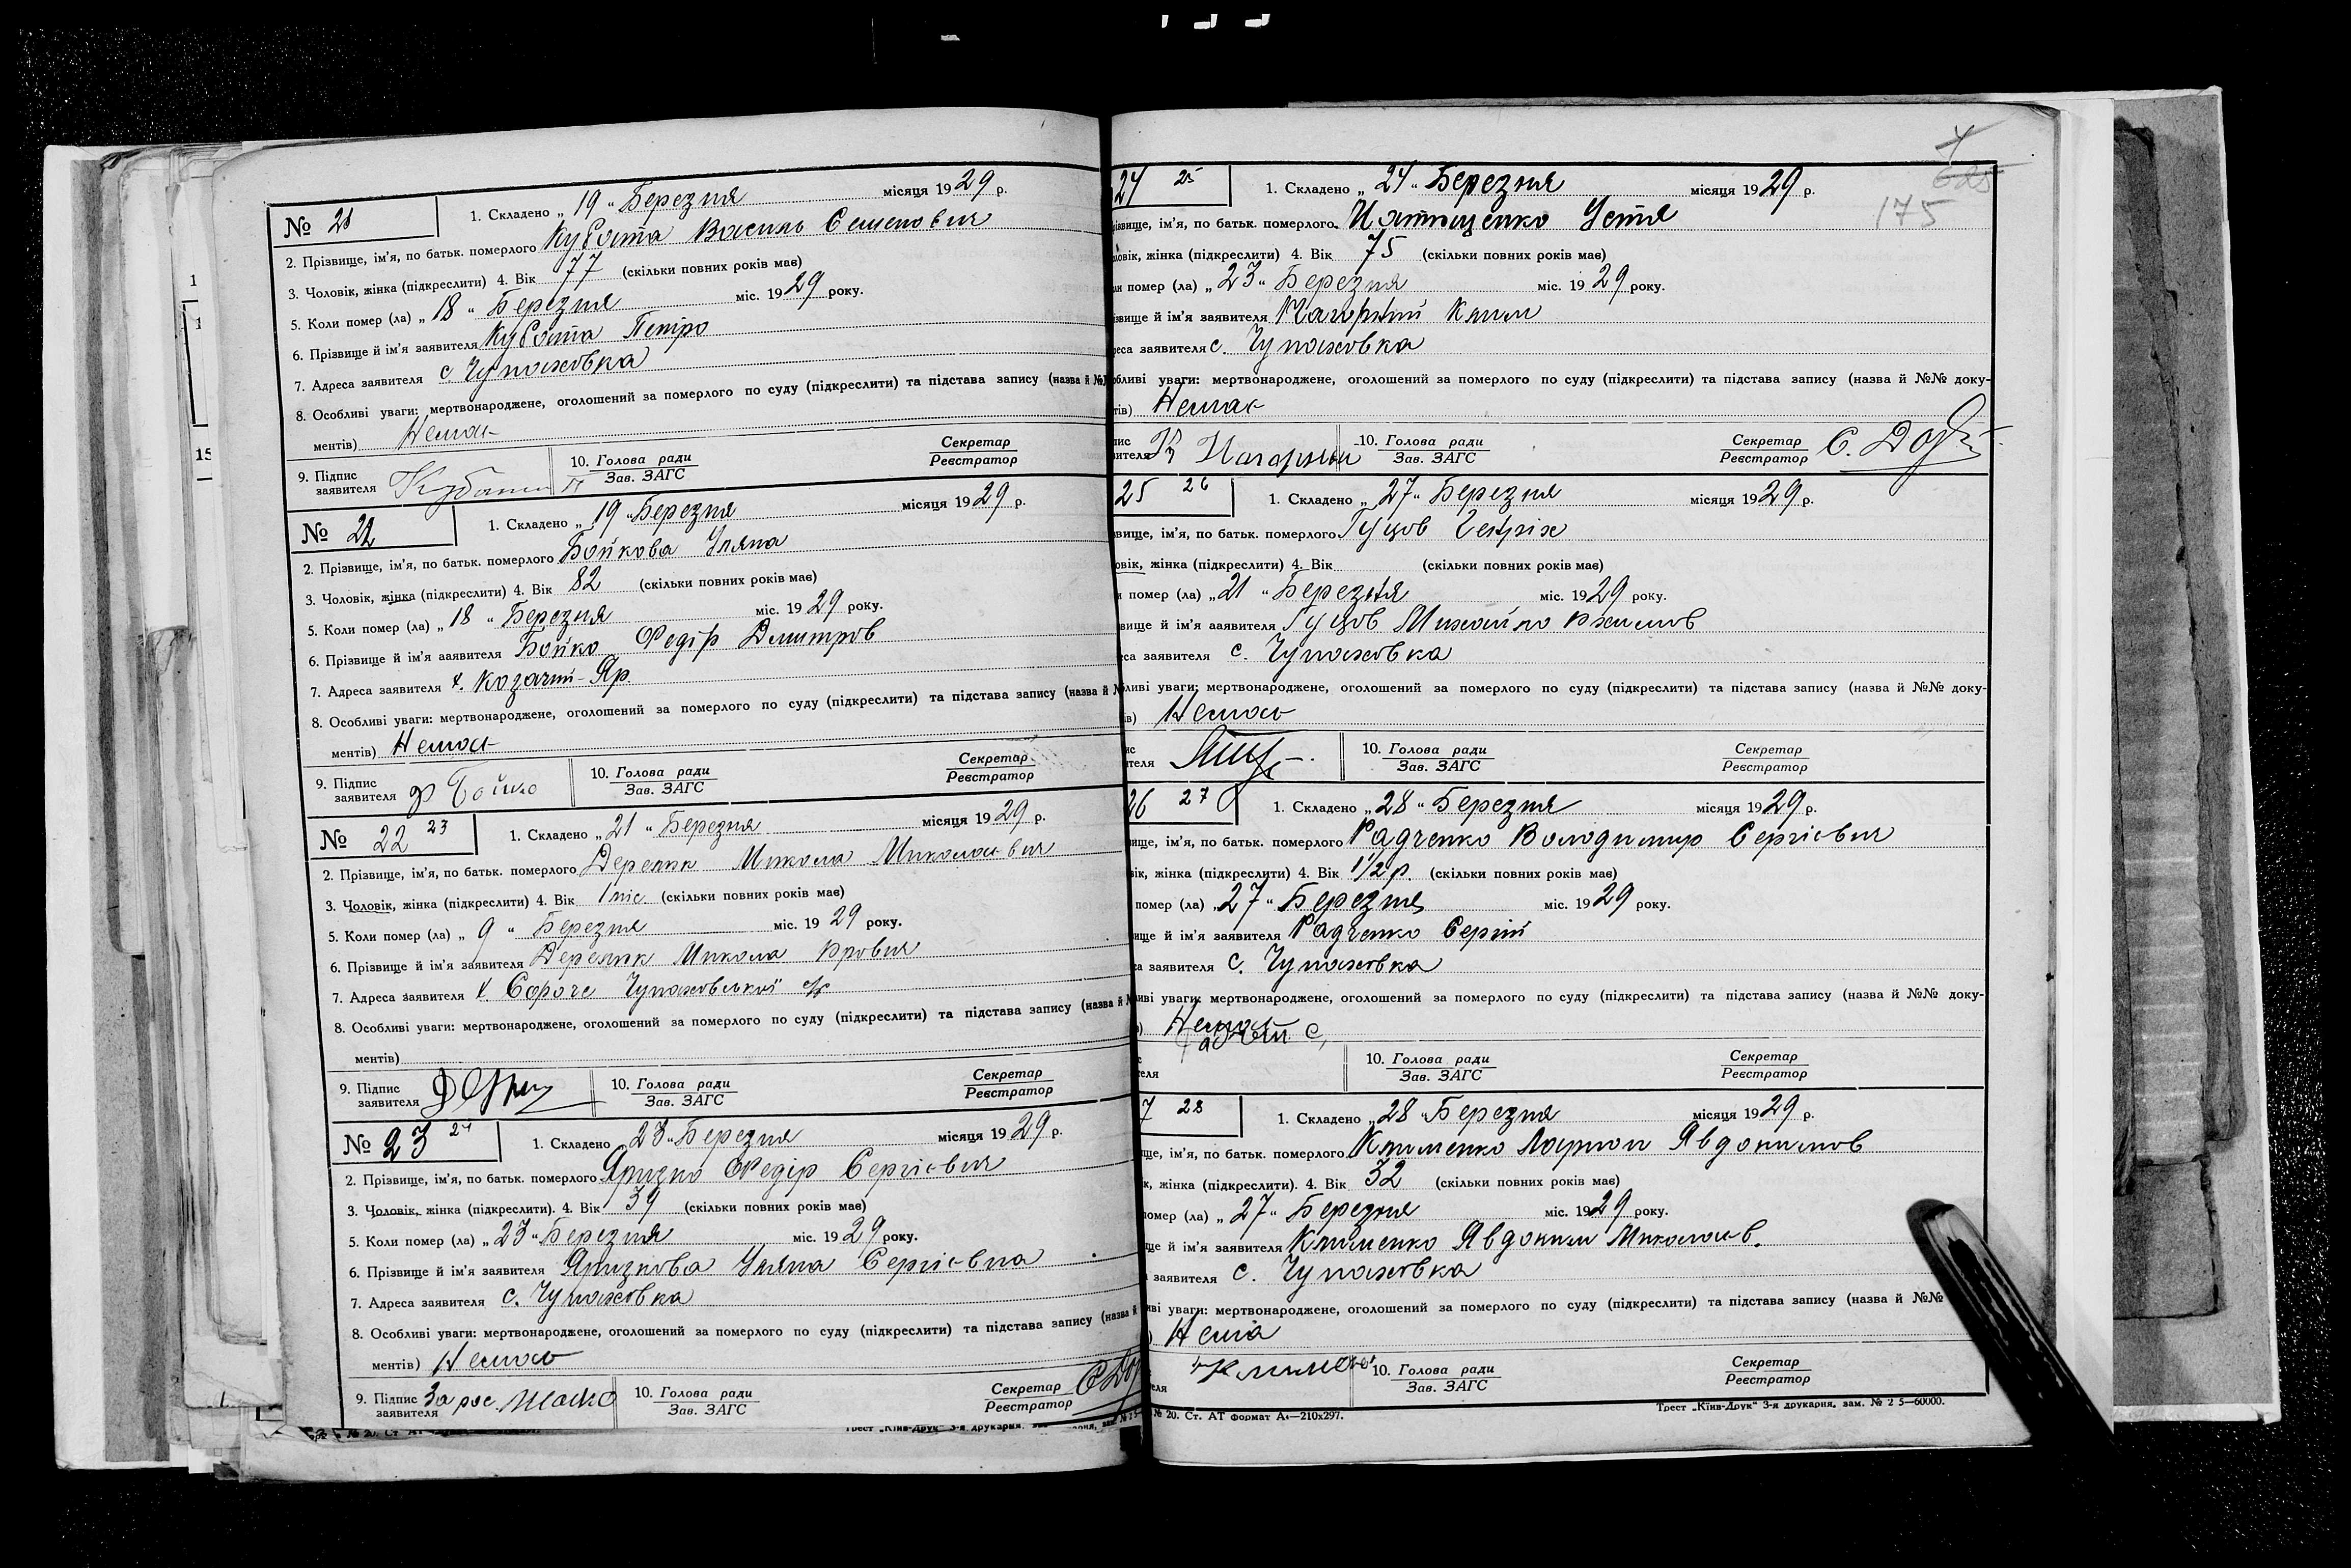 № 21
1. Складено „ 19 “ Березня місяця 1929 р.
2. Прізвище, ім'я, по батьк. померлого Кубата Василь Семенович
3. Чоловік, жінка (підкреслити) 4. Вік 77 (скільки повних років має)
5. Коли помер (ла) „ 18 “ Березня міс. 1929 року.
6. Прізвище й ім'я заявителя Кубата Петро
7. Адреса заявителя с. Чупаховка
8. Особливі уваги: мертвонароджене, оголошений за померлого по суду (підкреслити) та підстава запису (назва й №
ментів) Немає
9. Підпис заявителя 10. Голова ради Секретар
Зав. ЗАГС Реєстратор
№ 22
1. Складено „ 19 “ Березня місяця 1929 р.
2. Прізвище, ім'я, по батьк. померлого Бойкова Уляна
3. Чоловік, жінка (підкреслити) 4. Вік 82 (скільки повних років має)
5. Коли помер (ла) „ 18 “ Березня міс. 1929 року.
6. Прізвище й ім'я ааявителя Бойко Федір Дмитров
7. Адреса заявителя х. Козачий-Яр.
8. Особливі уваги: мертвонароджене, оголошений за померлого по суду (підкреслити) та підстава запису (назва й №
ментів) Немає
9. Підпис заявителя Ф Бойко 10. Голова ради Секретар
Зав. ЗАГС Реєстратор
№ 22 23
1. Складено „ 21 “ Березня місяця 1929 р.
2. Прізвище, ім'я, по батьк. померлого Микола Миколаєвич
3. Чоловік, жінка (підкреслити) 4. Вік 1 міс. (скільки повних років має)
5. Коли помер (ла) „ 9 “ Березня міс. 1929 року.
6. Прізвище й ім'я заявителя Микола
7. Адреса заявителя х Сороче Чупаховської с/р
8. Особливі уваги: мертвонароджене, оголошений за померлого по суду (підкреслити) та підстава запису (назва й №
ментів)
9. Підпис заявителя 10. Голова ради Секретар
Зав. ЗАГС Реєстратор
№ 23 24
1. Складено „ 23 “ Березня місяця 1929 р.
2. Прізвище, ім'я, по батьк. померлого Федір Сергієвич
3. Чоловік, жінка (підкреслити). 4. Вік 34 (скільки повних років має)
5. Коли помер (ла) „ 23 “ Березня міс. 1929 року.
6. Прізвище й ім'я заявителя Уляна Сергієвна
7. Адреса заявителя с. Чупаховка
8. Особливі уваги: мертвонароджене, оголошений за померлого по суду (підкреслити) та підстава запису (назва й
ментів) Немає
9. Підпис заявителя За 10. Голова ради Секретар
Зав. ЗАГС Реєстратор
175
24 25
1. Складено „ 24 “ Березня місяця 1929 р.
ізвище, ім'я, по батьк. померлого. Устя
ловік, жінка (підкреслити) 4. Вік 75 (скільки повних років має)
ли помер (ла) „ 23 “ Березня міс. 1929 року.
ізвище й ім'я заявителя Клим
реса заявителя с. Чупаховка
обливі уваги: мертвонароджене, оголошений за померлого по суду (підкреслити) та підстава запису (назва й №№ доку-
тів) Немає
10. Голова ради Секретар
Зав. ЗАГС Реєстратор
25 26
1. Складено „ 27 “ Березня місяця 1929 р.
звище, ім'я, по батьк. померлого Гуцов
овік, жінка (підкреслити) 4. Вік (скільки повних років має)
помер (ла) „ 21 “ Березня міс. 1929 року.
вище й ім'я ааявителя Гуцов Михайло
еса заявителя с. Чупаховка
бливі уваги: мертвонароджене, оголошений за померлого по суду (підкреслити) та підстава запису (назва й №№ доку-
ів) Немає
10. Голова ради Секретар
Зав. ЗАГС Реєстратор
26 27
1. Складено „ 28 “ Березня місяця 1929 р.
ище, ім'я, по батьк. померлого Радченко Володимир Сергієвич
вік, жінка (підкреслити) 4. Вік 1 1/2 р. (скільки повних років має)
помер (ла) „ 27 “ Березня міс. 1929 року.
ище й ім'я заявителя Радченко Сергій
а заявителя с. Чупаховка
иві уваги: мертвонароджене, оголошений за померлого по суду (підкреслити) та підстава запису (назва й №№ доку-
Немає
10. Голова ради Секретар
Зав. ЗАГС Реєстратор
7 28
1. Складено „ 28 “ Березня місяця 1929 р.
ще, ім'я, по батьк. померлого Клименко Ларион Явдокимов
к, жінка (підкреслити). 4. Вік 32 (скільки повних років має)
омер (ла) „ 27 “ Березня міс. 1929 року.
ще й ім'я заявителя Клименко Явдоким Миколаєв.
заявителя с. Чупаховка
иві уваги: мертвонароджене, оголошений за померлого по суду (підкреслити) та підстава запису (назва й №№
Нема
10. Голова ради Секретар
Зав. ЗАГС Реєстратор
№ 20. Ст. АТ формат А₄—210х297.
Трест „Київ-Друк“ 3-я друкарня, зам. № 2 5—60000.